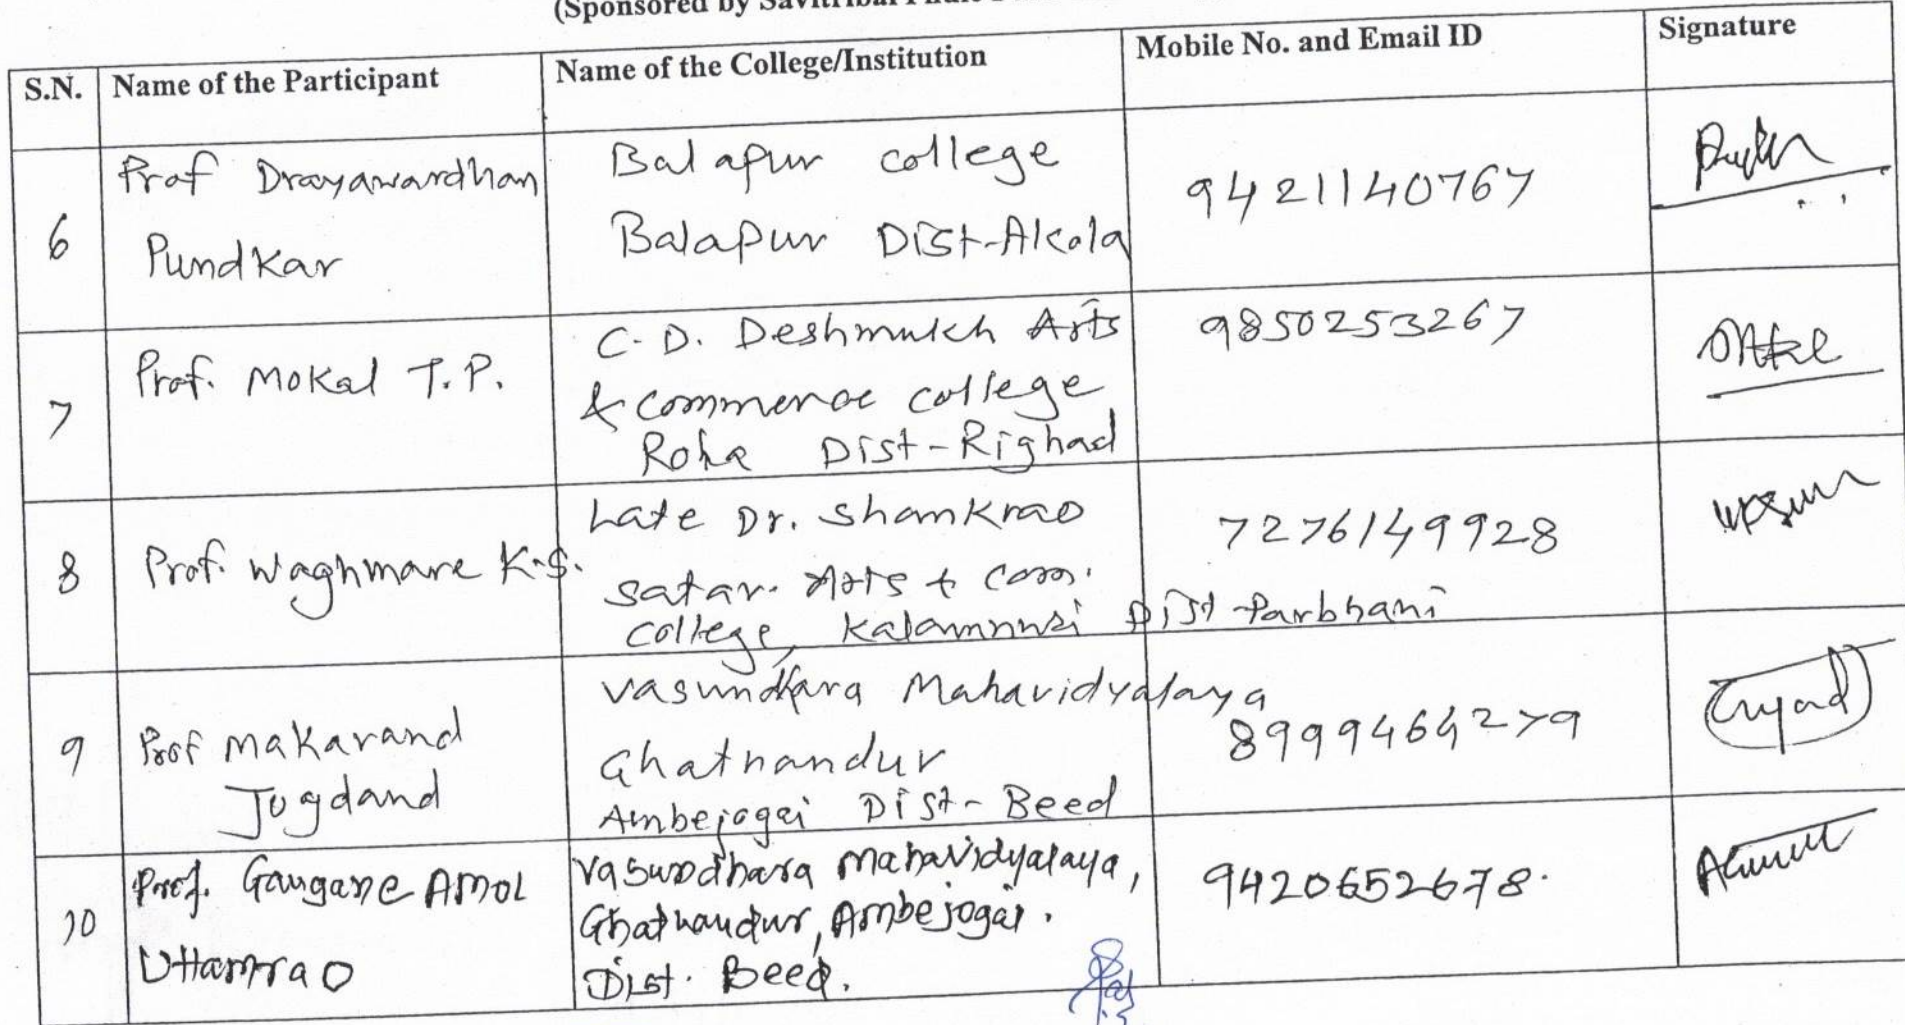 (Sponsored by Savitribai Phule
S.N. Name of the Participant Name of the College/Institution Mobile No. and Email ID Signature
6 Prof Drayawardhan Pundkar
Balapur college
Balapur Dist-Akola
9421140767
7 Prof. Mokal T.P.
C.D. Deshmukh Arts
& commerce college
Roha Dist-Righad
9850253267
8 Prof. Waghmare K.S.
Late Dr. Shamkrao
Satav. Arts + Com.
college, Dist-Parbhani
7276149928
9 Prof Makarand
Jogdand
Vasundhara Mahavidyalaya
Ghatnandur
Ambejogai Dist-Beed
8999464279
10 Prof. Gangane Amol
Uttamrao
Vasundhara Mahavidyalaya,
Ghatnandur, Ambejogai.
Dist. Beed.
9420652678.